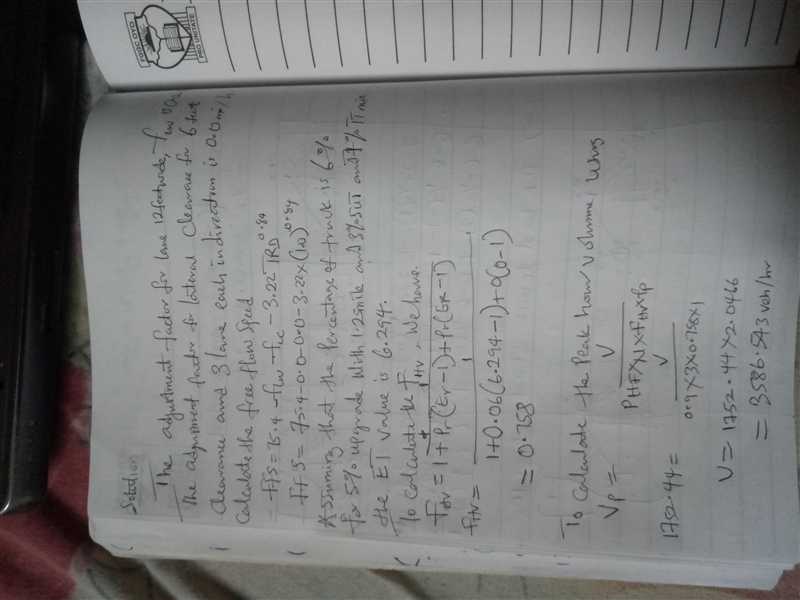 FODC OYO
PRO UNITATE
Solution
The adjustment factor for lane 12 feet wide, flw is 0.0
The adjustment factor for lateral clearance for 6 feet
clearance and 3 lane each in direction is 0.0 mi/h
Calculate the free flow speed
FFS = 75.4 - flw - flc - 3.22 TRD^0.84
FFS = 75.4 - 0.0 - 0.0 - 3.22 x (1.0)^0.84
Assuming that the percentage of truck is 6%
for 5% upgrade with 1.25 mile and 3% SUT and 7% TT mix
the ET value is 6.294.
To calculate the FHv, We have:
1
FHv = 1 + Pr(Er-1) + Pr(Er-1)
1
FHv = 1 + 0.06(6.294-1) + 0(0-1)
= 0.758
To Calculate the Peak hour Volume Using
V
Vp = PHF x N x FHv x fp
V
1752.44 = 0.9 x 3 x 0.758 x 1
V = 1752.44 x 2.0466
= 3586.543 veh/hr